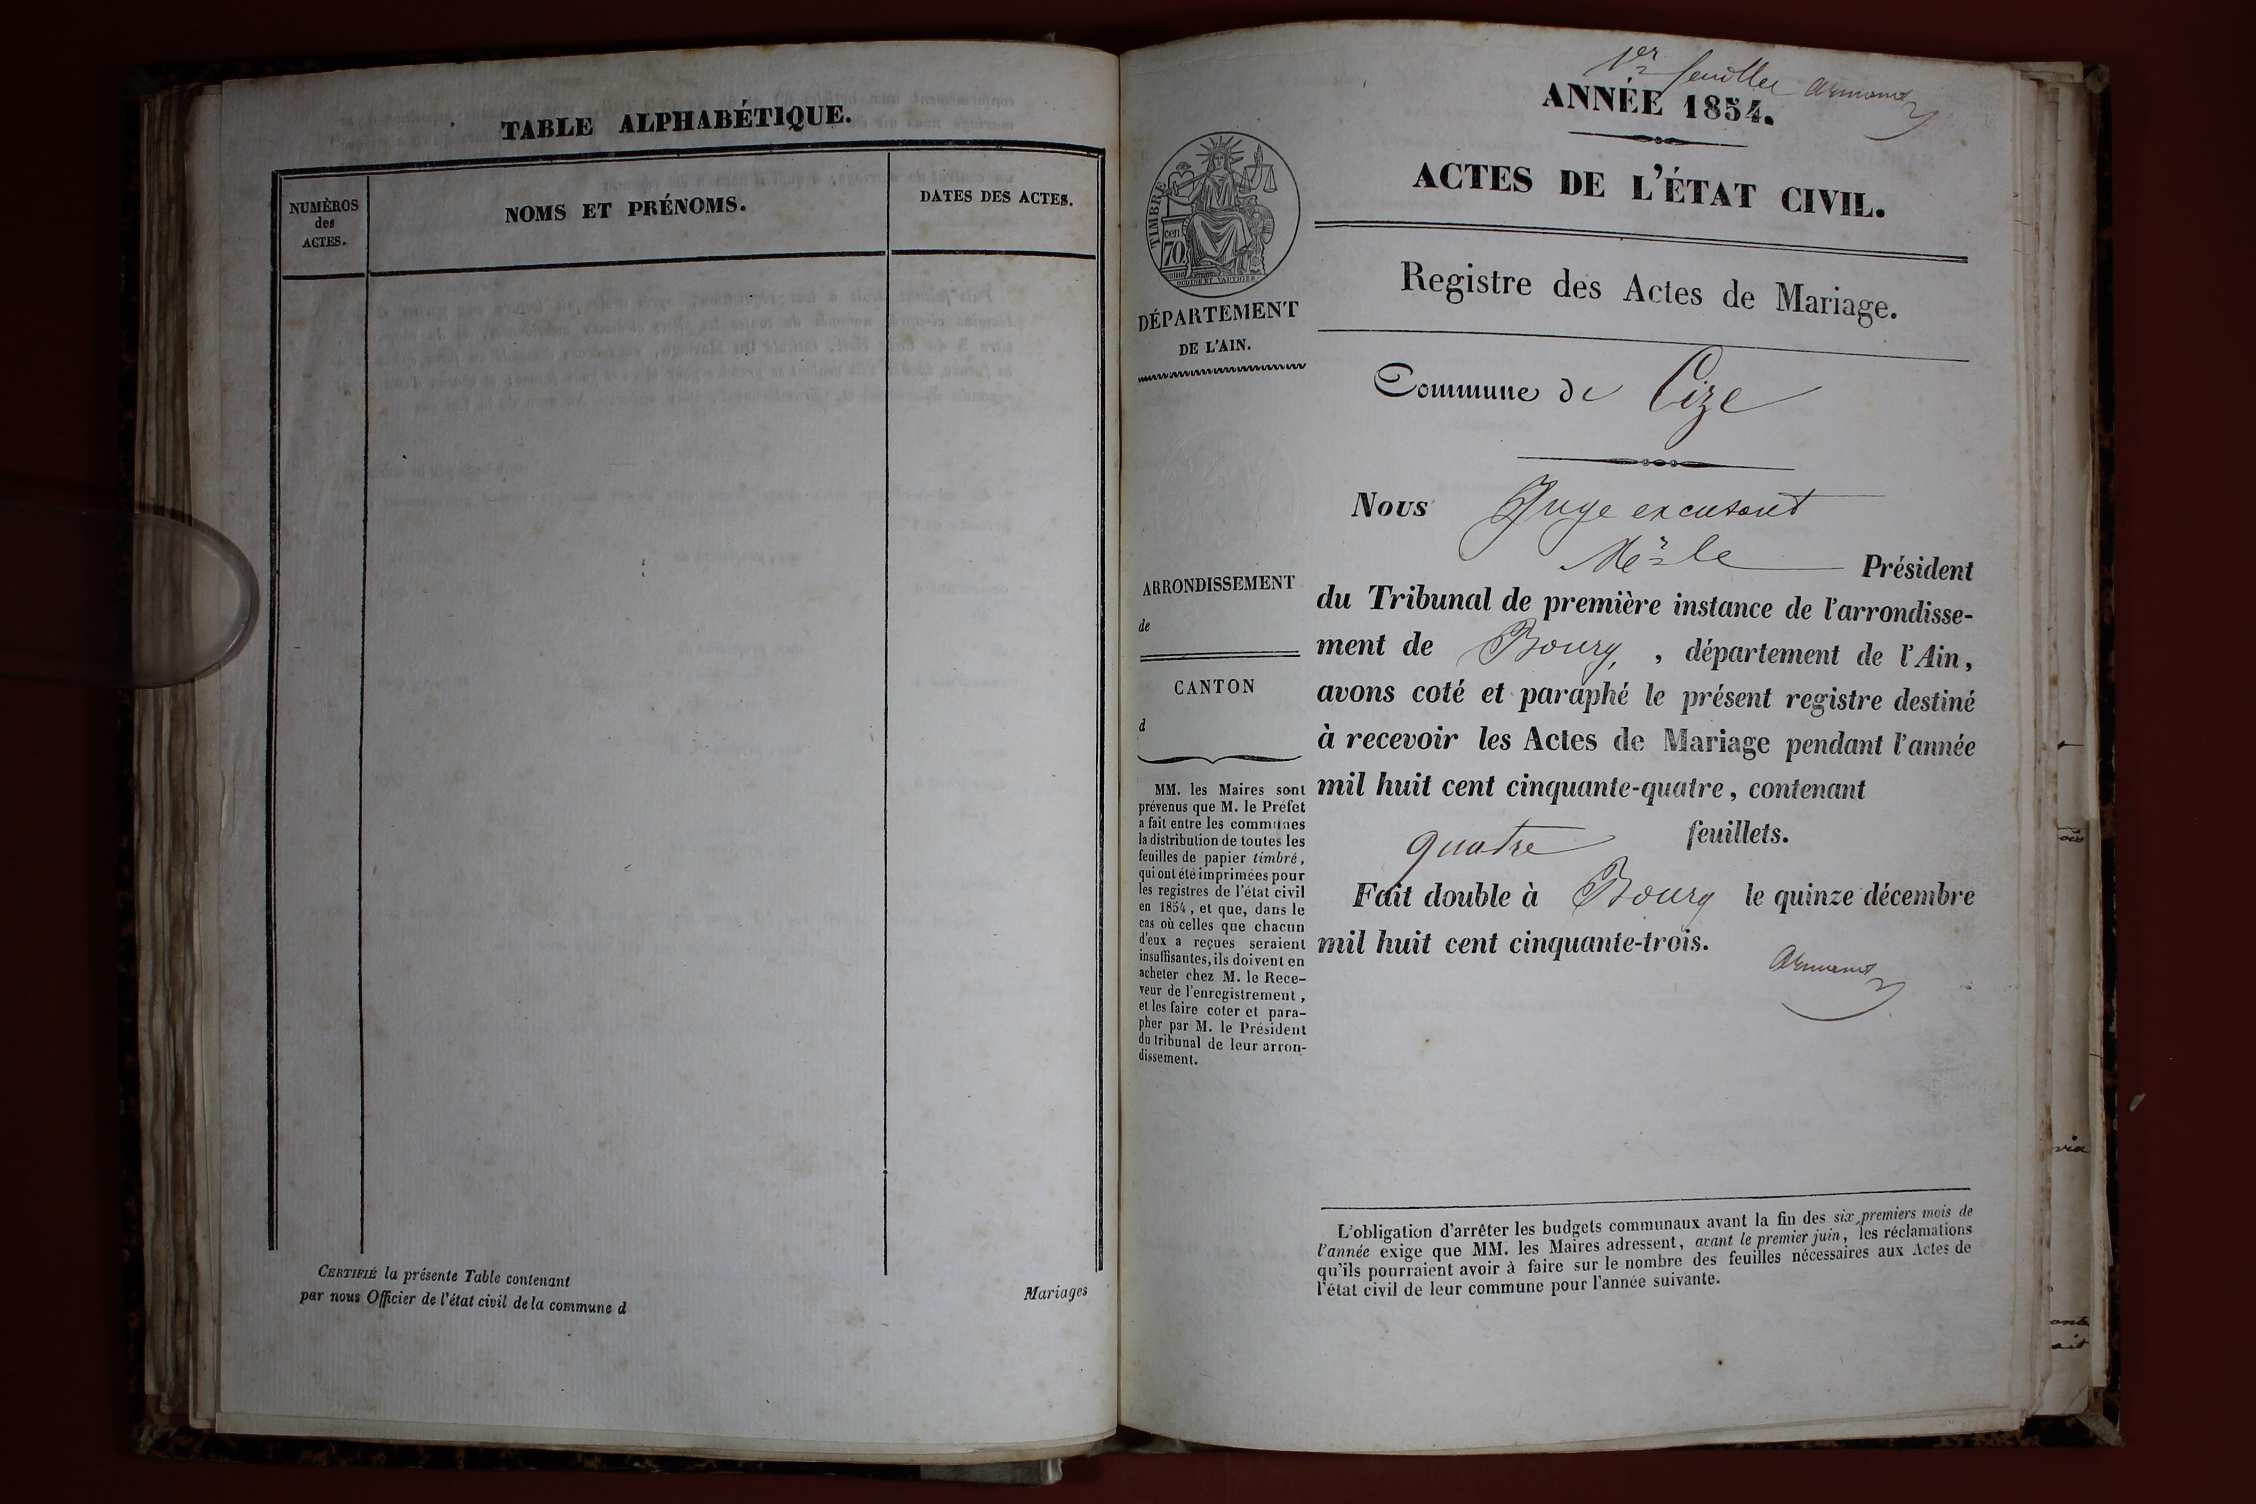 TABLE ALPHABÉTIQUE.
NUMÉROS
des
ACTES.
NOMS ET PRÉNOMS.
DATES DES ACTES.
CERTIFIÉ la présente Table contenant
Mariages
par nous Officier de l'état civil de la commune d
1er feuillet Armand
ANNÉE 1854.
ACTES DE L'ÉTAT CIVIL.
Registre des Actes de Mariage.
TIMBRE
cen
70
OUDINÉ ET VAUTHIER
DÉPARTEMENT
DE L'AIN.
Commune de Cize
Nous Juge excusant
Mr le Président
du Tribunal de première instance de l'arrondisse-
ment de Bourg, , département de l'Ain,
avons coté et paraphé le présent registre destiné
à recevoir les Actes de Mariage pendant l'année
mil huit cent cinquante-quatre, contenant
quatre feuillets.
Fait double à Bourg le quinze décembre
mil huit cent cinquante-trois.
Armand
ARRONDISSEMENT
de
CANTON
d
MM. les Maires sont
prévenus que M. le Préfet
a fait entre les communes
la distribution de toutes les
feuilles de papier timbré,
qui ont été imprimées pour
les registres de l'état civil
en 1854, et que, dans le
cas où celles que chacun
d'eux a reçues seraient
insuffisantes, ils doivent en
acheter chez M. le Rece-
veur de l'enregistrement,
et les faire coter et para-
pher par M. le Président
du tribunal de leur arron-
dissement.
L'obligation d'arrêter les budgets communaux avant la fin des six premiers mois de
l'année exige que MM. les Maires adressent, avant le premier juin, les réclamations
qu'ils pourraient avoir à faire sur le nombre des feuilles nécessaires aux Actes de
l'état civil de leur commune pour l'année suivante.